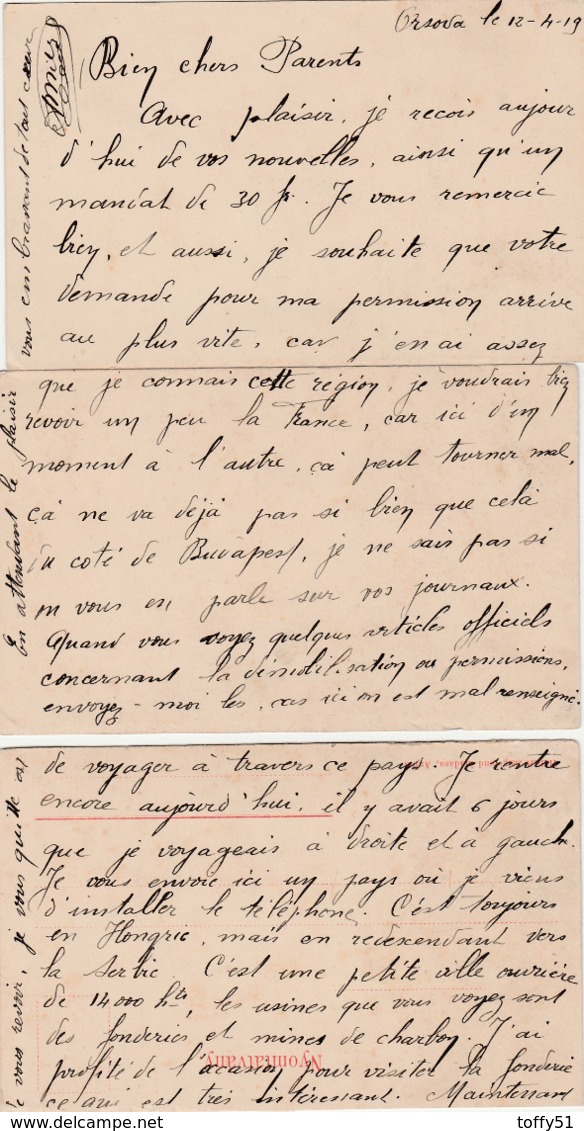 Orsova le 12-4-19
Bien chers Parents
Avec plaisir, je recois aujour
d'hui de vos nouvelles, ainsi qu'un
mandat de 30 fr. Je vous remercie
bien, et aussi, je souhaite que votre
demande pour ma permission arrive
au plus vite, car j'en ai assez
de voyager à travers ce pays. Je rentre
encore aujourd'hui, il y avait 6 jours
que je voyageais à droite et à gauche.
Je vous envoie ici un pays où je viens
d'installer le téléphone. C'est toujours
en Hongrie, mais en redescendant vers
la Serbie. C'est une petite ville ouvrière
de 14000 hts, les usines que vous voyez sont
des fonderies et mines de charbon. J'ai
profité de l'ocasion pour visiter la fonderie
ce qui est très intéressant. Maintenant
que je connais cette région, je voudrais bien
revoir un peu la France, car ici d'un
moment à l'autre, çà peut tourner mal,
çà ne va déjà pas si bien que celà
du coté de Budapest, je ne sais pas si
on vous en parle sur vos journaux.
Quand vous voyez quelques articles officiels
concernant la démobilisation ou permissions,
envoyez-moi les, car ici on est mal renseigné.
En attendant le plaisir
de vous revoir, je vous quitte en
vous embrassant de tout coeur
Nyomtatvány
toffy51